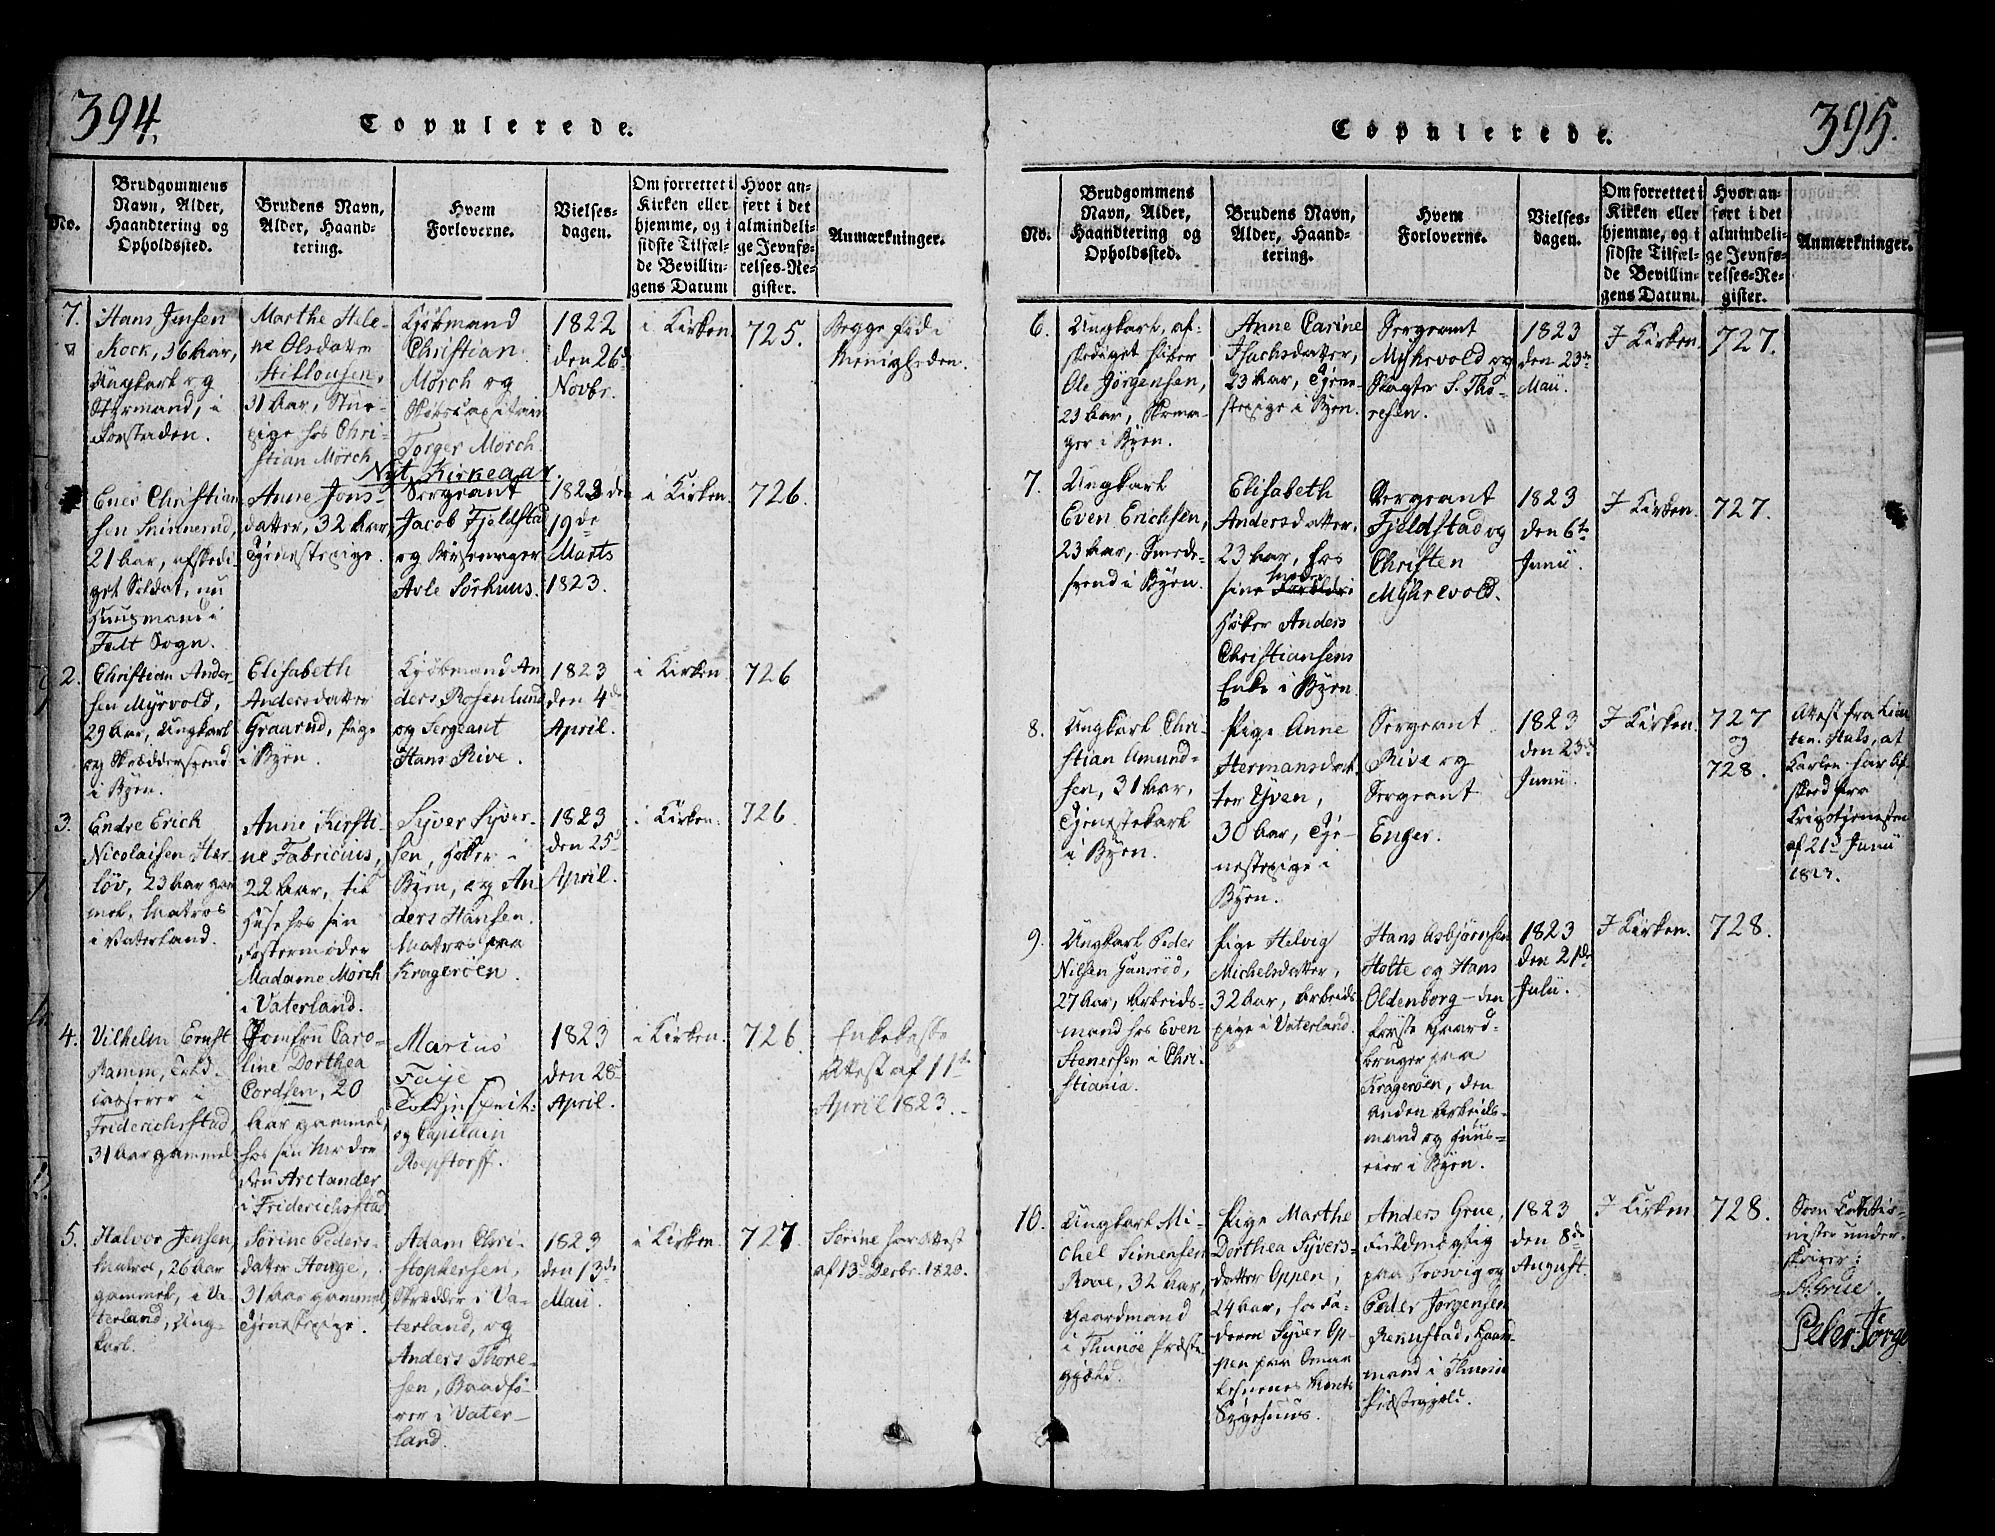 394.
Copulerede.
No.
Brudgommens
Navn, Alder,
Haandtering og
Opholdssted.
Brudens Navn,
Alder, Haand-
tering.
Hvem
Forloverne.
Vielses-
dagen.
Om forrettet i
Kirken eller
hjemme, og i
sidste Tilfæl-
de Bevillin-
gens Datum
Hvor an-
ført i det
almindeli-
ge Jevnfø-
relses-Re-
gister.
Anmærkninger.
7.
Hans Jensen
Kock, 36 Aar,
Ungkarl og
Styrmand, i
Forstaden.
Marthe Hele-
ne Olsdatter
31 Aar, Stue-
pige hos Chri-
stian Mørch
Kjøbmand
Christian
Mørch og
Skibscapitain
Torger Mørch
1822
den 26
Novbr.
i Kirken
725.
Begge fød i
Menigheden.
Nyt Kirkeaar.
Ener Christian
sen
21 Aar, afskedi
get Soldat, nu
Huusmand i
Sogn.
Anne Jons-
datter, 32 Aar,
Tjenestepige.
Sergeant
Jacob Fjeldstad
og
Avle Sørhuus.
1823 den
19de
Marts
1823.
i Kirken.
726.
2.
Christian Ander-
sen Myrvold,
29 Aar, Ungkarl
og Skræddersvend
i Byen.
Elisabeth
Andersdatter
Graarud, Pige
i Byen.
Kjøbmand An
ders Rosenlund
og Sergeant
Hans Rive.
1823
den 4de
April.
i Kirken.
726
3.
Endre Erich
Nicolaisen Her-
löv, 23 Aar gam
mel, Matros
i Vaterland.
Anne Kirsti-
ne Fabricius,
22 Aar, til
Huse hos sin
Fostermoder
Madame Mörch
i Vaterland.
Syver Syver-
sen, Høker i
Byen, og An
ders Hansen.
Matros paa
Kragerøen.
1823
den 25d
April.
i Kirken.
726.
4.
Vilhelm Ernst
Ramm, Told-
casserer i
Friderichsstad,
31 Aar gammel
Jomfru Caro-
line Dorthea
Cordsen, 20
Aar gammel,
hos sin Moder
Fru Arctander
i Friderichsstad
Marius
Faye
Toldinspect:
og Capitain
Roepstorff.
1823
den 28
April.
i Kirken.
726.
Attest af 11te
April 1823.
5.
Halvor Jensen,
Matros, 26 Aar
gammel, i Va
terland, Ung-
karl.
Sørine Peders-
datter Houge,
31 Aar gammel,
Tjenestepige.
Adam Chri-
stophersen,
Skrædder i Va-
terland, og
Anders Thore-
sen, Baadfø-
rer i Vater-
land.
1823
den 13de
Maii.
i Kirken
727
Sørine har Attest
af 13d Decbr. 1820.
395.
Copulerede.
No.
Brudgommens
Navn, Alder,
Haandtering og
Opholdssted.
Brudens Navn,
Alder, Haand-
tering.
Hvem
Forloverne.
Vielses-
dagen.
Om forrettet i
Kirken eller
hjemme, og i
sidste Tilfæl-
de Bevillin-
gens Datum.
Hvor an-
ført i det
almindeli-
ge Jevnfø-
relses-Re-
gister.
Anmærkninger.
6.
Ungkarl, af-
skediget
Ole Jørgensen,
23 Aar, Skoma-
ger i Byen.
Anne Carine
Isachsdatter,
23 Aar, Tjene-
stepige i Byen.
Sergeant
Myhrvold og
Slagter S. Tho-
resen.
1823
den 23de
Maii.
I Kirken.
727.
7.
Ungkarl
Even Erichsen,
23 Aar, Smede-
svend i Byen.
Elisabeth
Andersdatter,
23 Aar, hos
sine Moder
Høker Anders
Christiansens
Enke i Byen.
Sergeant
Fjeldstad og
Christen
Myhrevold.
1823
den 6te
Junii.
I Kirken.
727.
8.
Ungkarl Chri-
stian Amund-
sen, 31 Aar,
Tjenestekarl
i Byen.
Pige Anne
Hermansdat-
ter Yven,
30 Aar, Tje-
nestepige i
Byen.
Sergeant
Rive og
Sergeant
Enger.
1823
den 23d
Junii.
I Kirken.
727
og
728.
Attest fra Lieu
ten. Hals, at
Karlen har Af-
skeed fra
Krigstjenesten
af 21d Junii
1823.
9.
Ungkarl Peder
Nilsen Gunrød,
27 Aar, Arbeids-
mand hos Even
Stenersen i Chri-
stiania.
Pige Helvig
Michelsdatter,
32 Aar, Arbeids
pige i Vaterland.
Hans Asbjørnsen
Holte og Hans
Oldenborg - den
første Gaard-
bruger paa
Kragerøen, den
anden Arbeids-
mand og Huus-
eier i Byen.
1823
den 21de
Julii.
I Kirken.
728.
10.
Ungkarl Mi-
chel Simensen
Rove, 32 Aar,
Gaardmand
i Thunøe Præste
gjeld.
Pige Marthe
Dorthea Syvers-
datter Oppen,
24 Aar, hos Fa-
deren Syver Op-
pen paa
Anders Grue,
Fuldmægtig
paa Trosvig og
Peder Jørgensen
Gaard-
mand i Thunøe
Præstegjeld.
1823
den 8de
August.
I Kirken
728.
Som Cautio-
nister under-
skriver:
A. Grue.
Peter Jørge